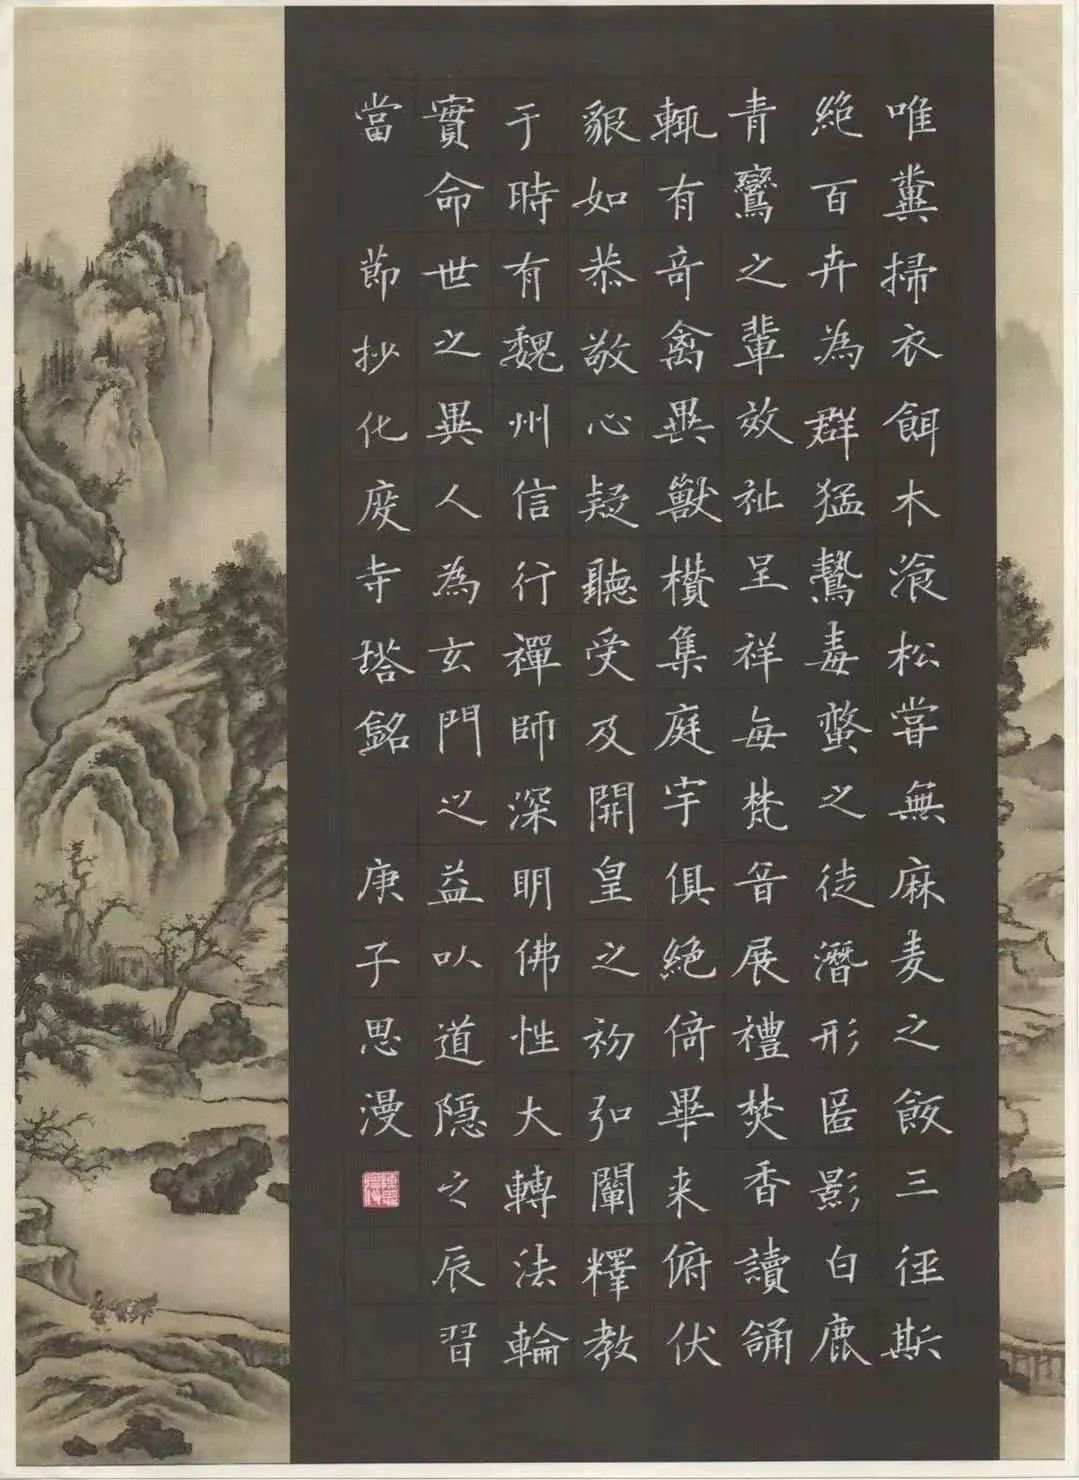 唯糞掃衣餌木飡松嘗無麻麦之飯三徑斯
絶百卉為群猛鷙毒螫之徒潛形匿影白鹿
青鸞之輩效祉呈祥每梵音展禮焚香讀誦
輒有奇禽異獸攅集庭宇俱絶倚畢来俯伏
貌如恭敬心疑聽受及開皇之初弘闡釋教
于時有魏州信行禪師深明佛性大轉法輪
實命世之異人為玄門之益以道隐之辰習
當 節抄化度寺塔銘 庚子思漫